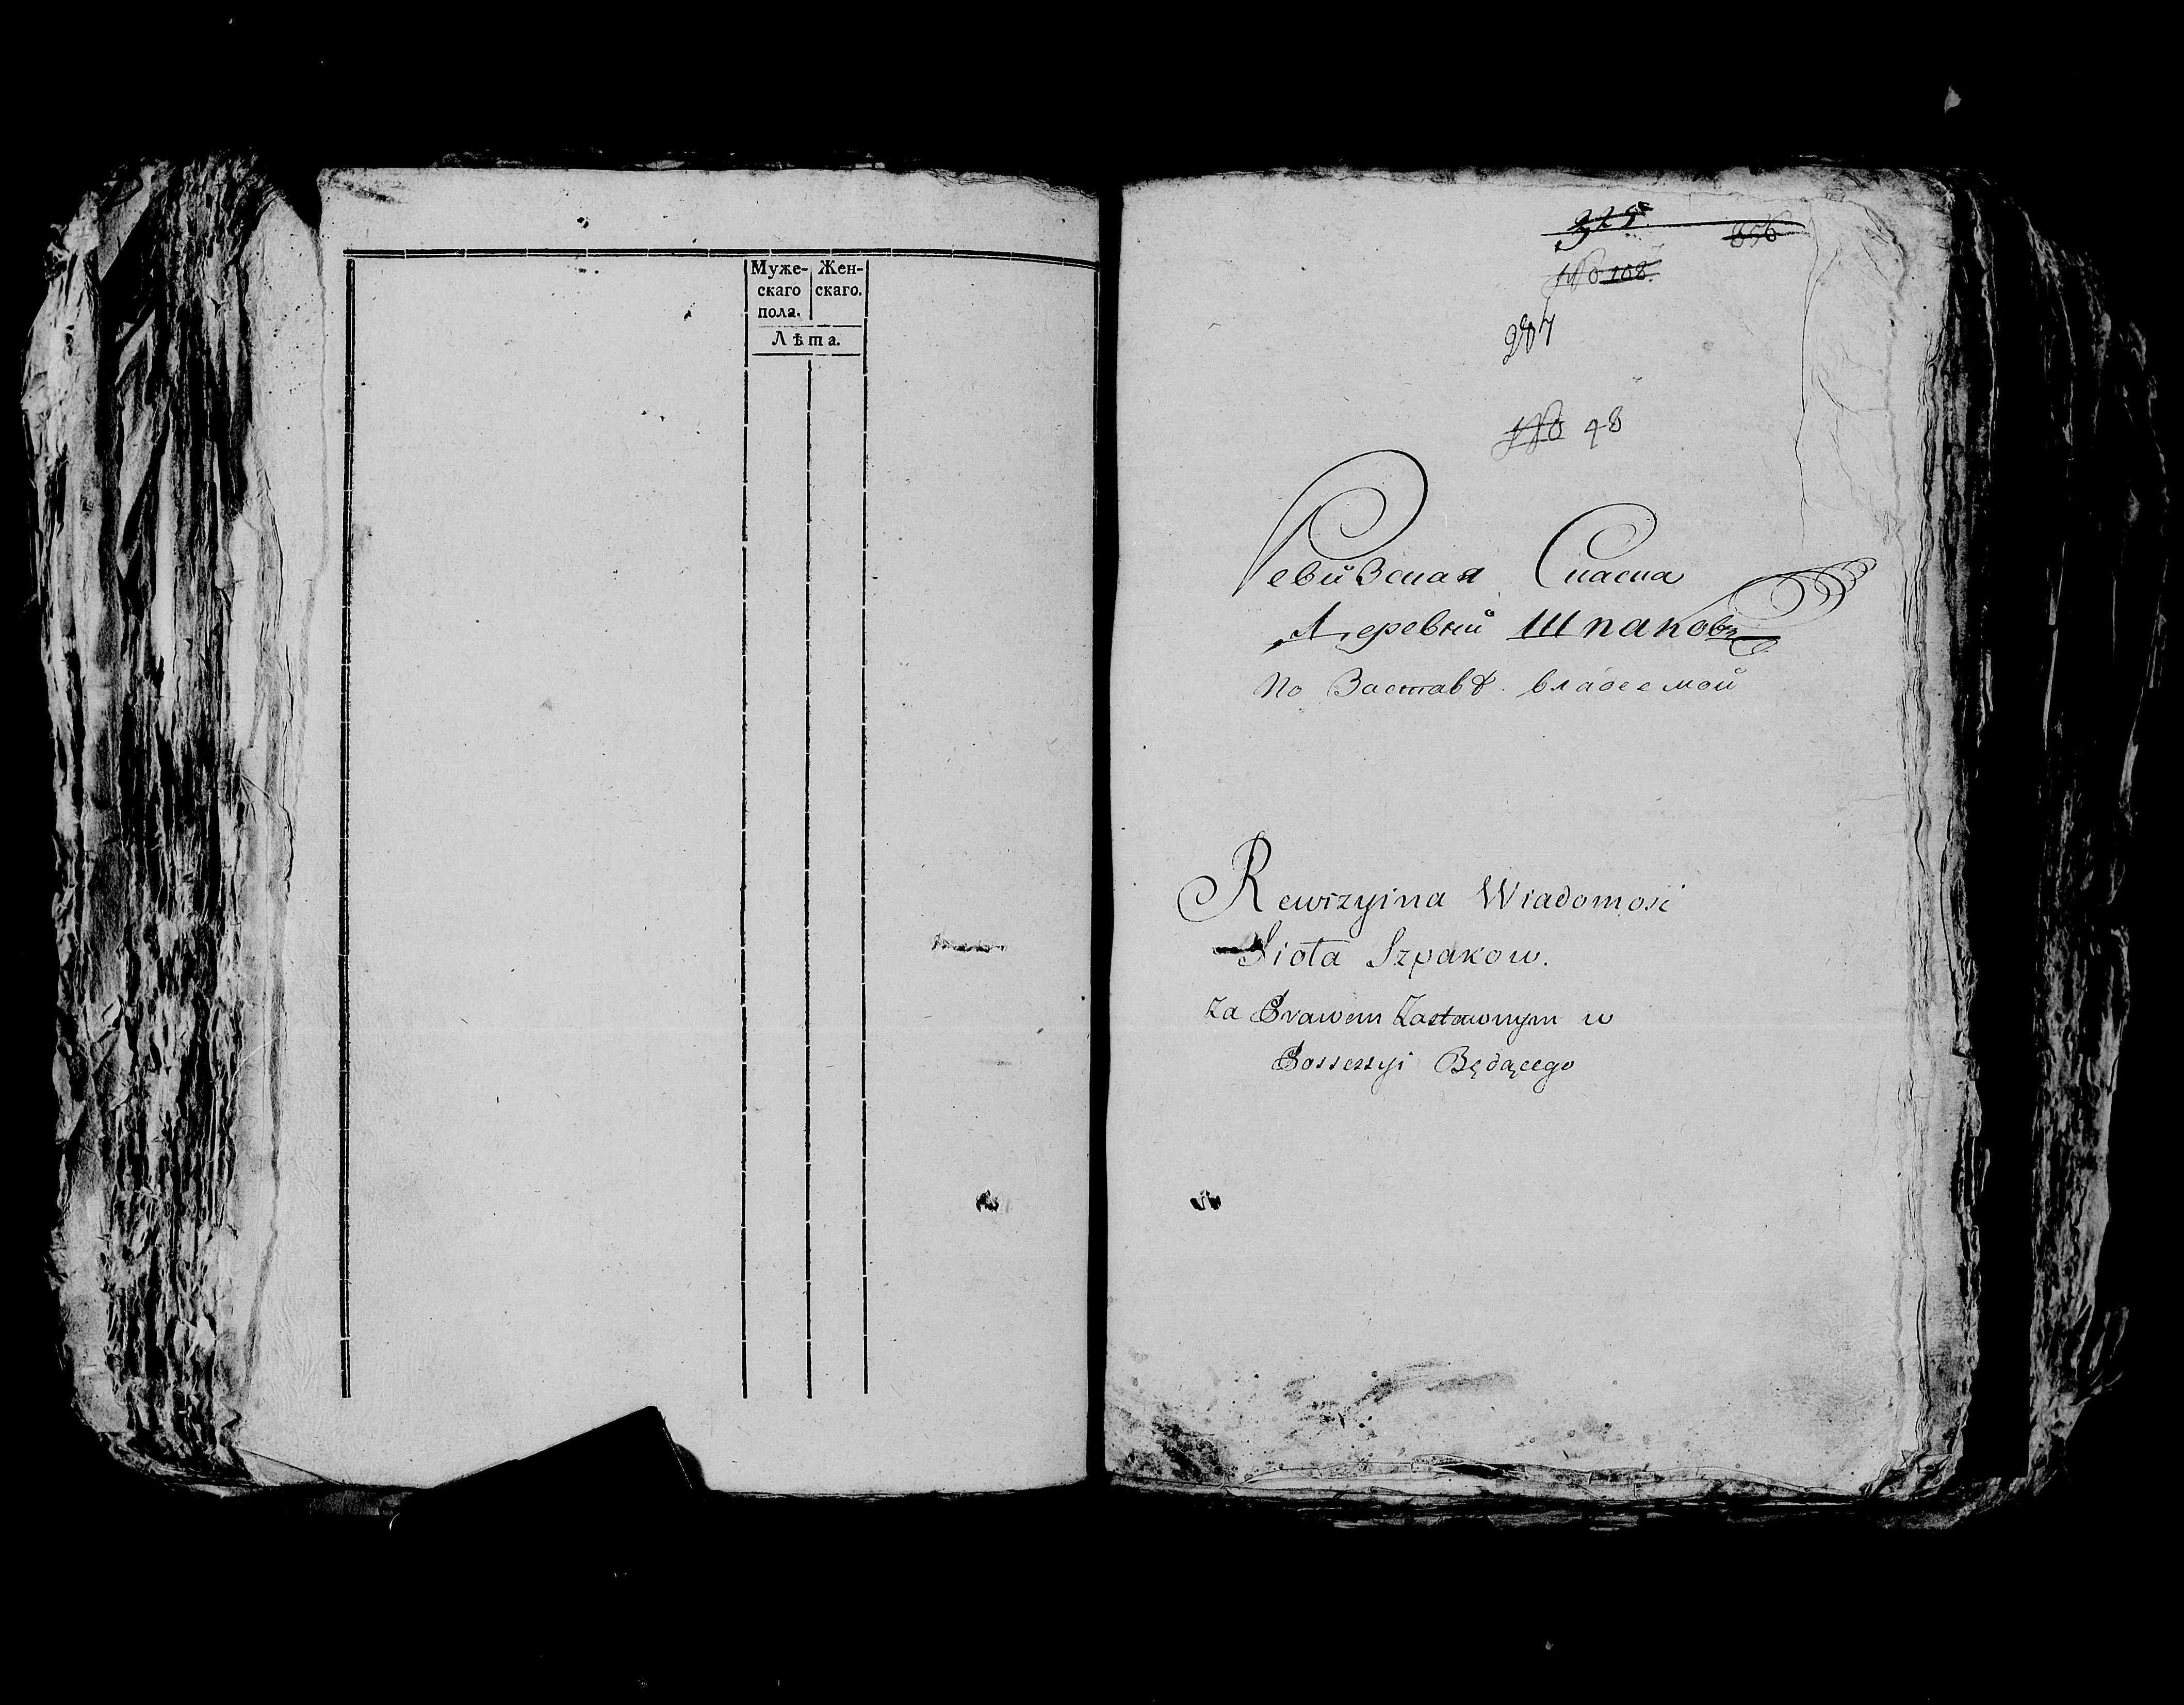 Муже- Жен-
скаго скаго.
пола.
Лѣта.
325
856
No 108.
287
No 48
Ревизская Сказка
Деревни Шпаковъ
По Заставѣ владеемой
Rewizyina Wiadomosc
Sioła Szpakow.
Za Prawem Zastawnym w
Possessyi Będącego